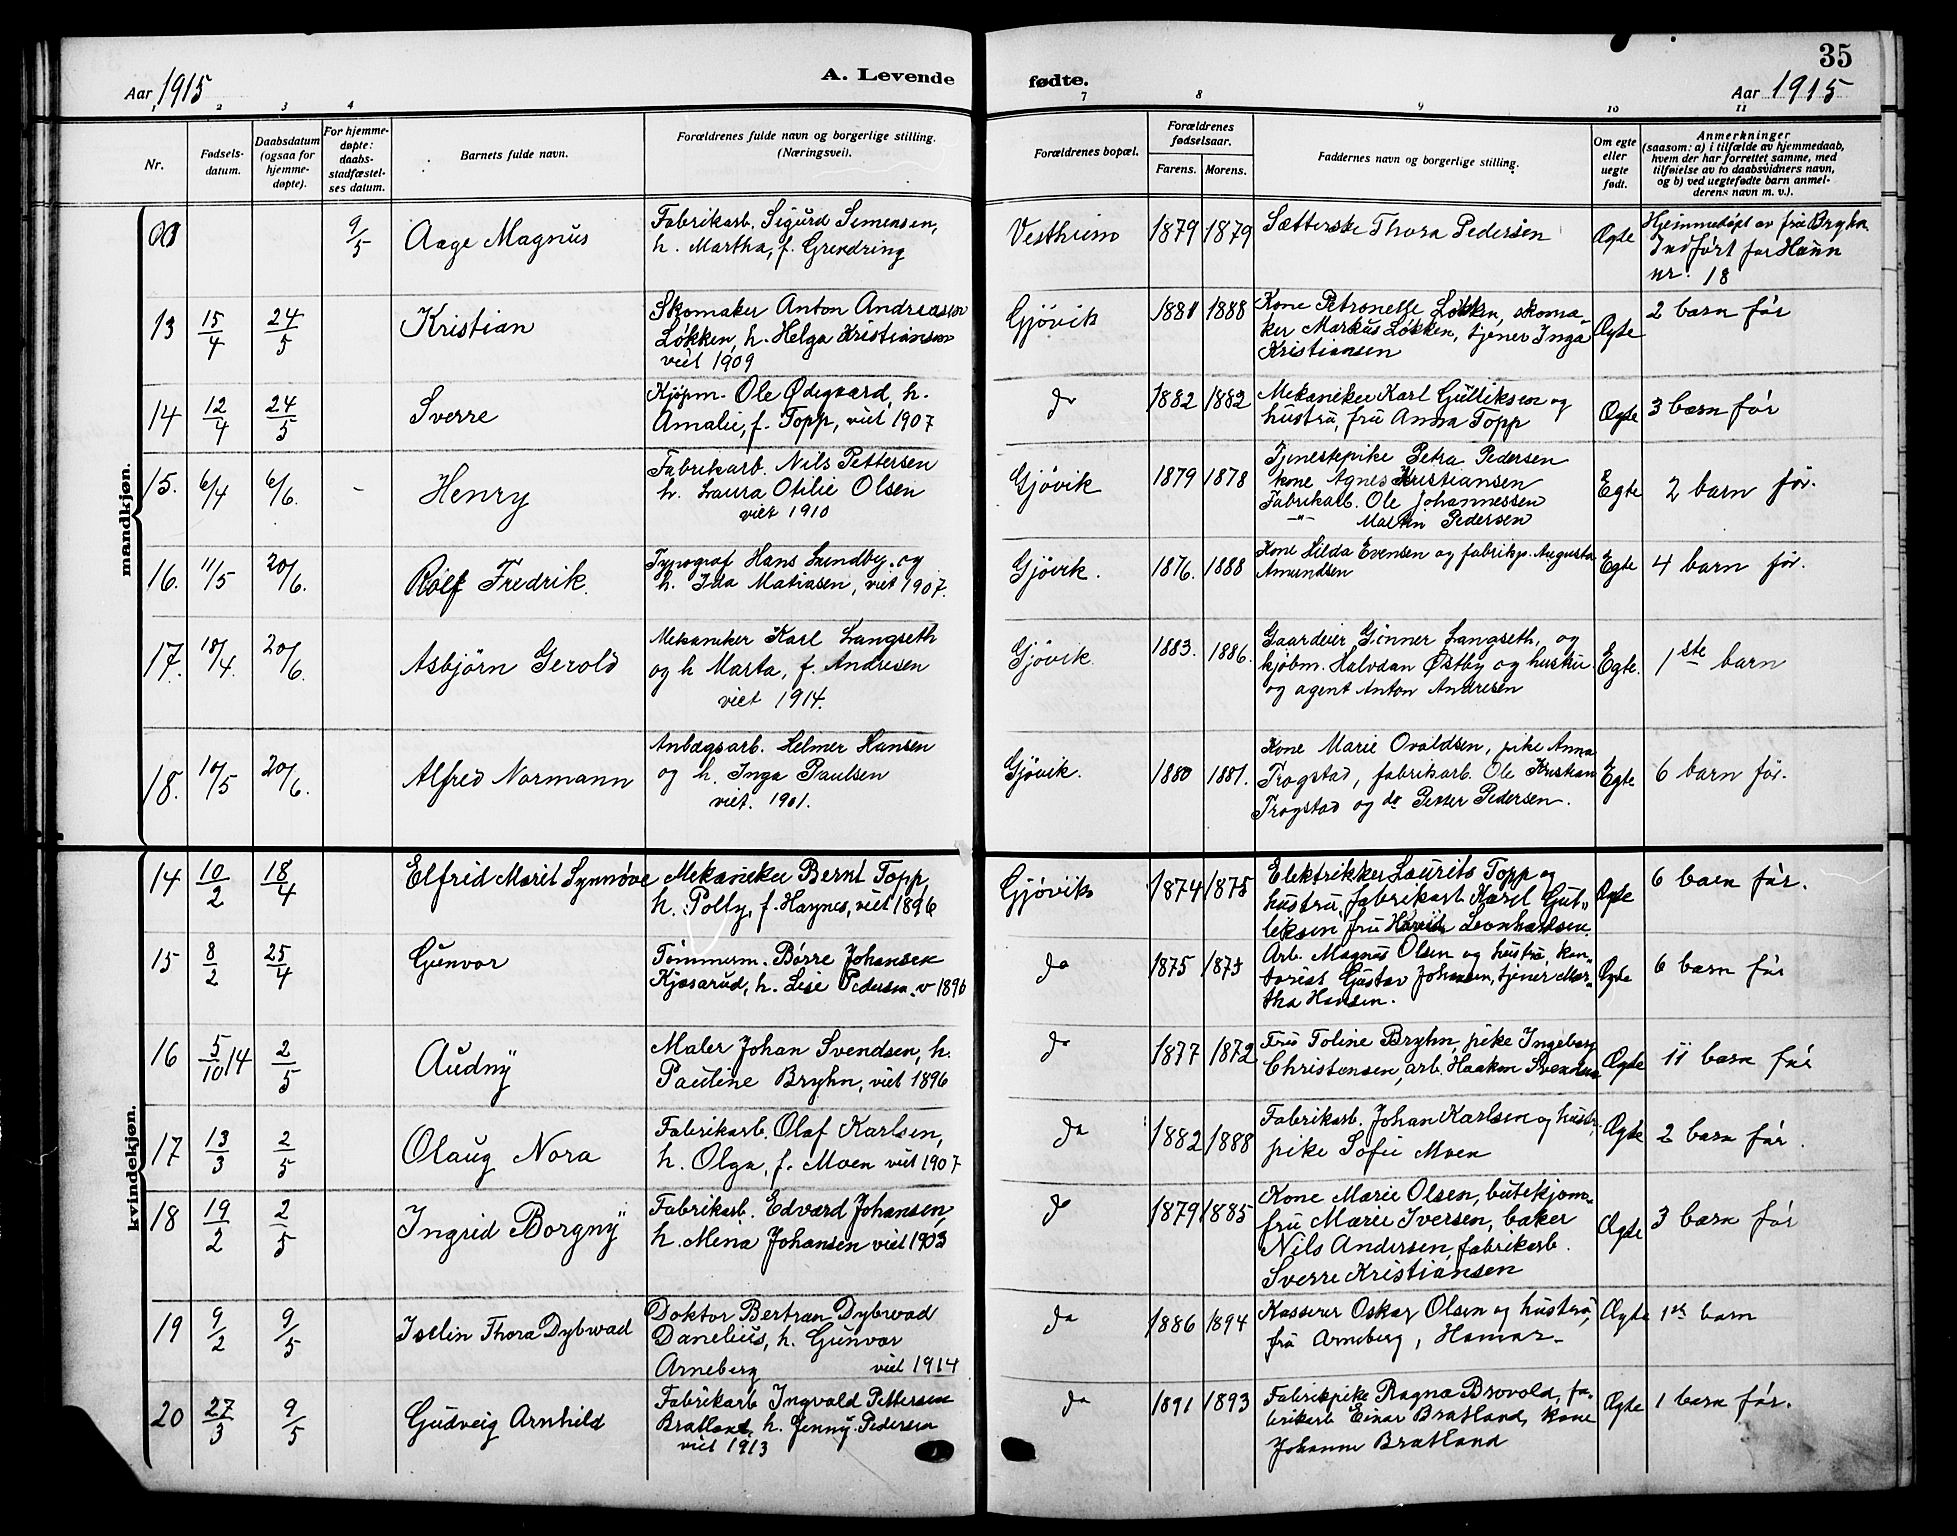 35
Aar 1915 A. Levende fødte. Aar 1915
1 2 3 4 7 8 9 10 11
Nr.
Fødsels-
datum.
Daabsdatum
(ogsaa for
hjemme-
døpte).
For hjemme-
døpte:
daabs-
stadfæstel-
ses datum.
Barnets fulde navn.
Forældrenes fulde navn og borgerlige stilling.
(Næringsveil.
Forældrenes bopæl.
Forældrenes
fødselsaar.
Farens. Morens.
Faddernes navn og borgerlige stilling.
Om egte
eller
uegte
født.
Anmerkninger
(saasom: a) i tilfælde av hjemmedaab,
hvem der har forrettet samme, med
tilføielse av to daabsvidners navn,
og b) ved uegtefødte barn anmel-
derens navn m. v.).
mandkjøn.
9/5 Aage Magnus
Fabrikarb. Sigurd Simensen,
h. Martha, f. Grendring
Vestheim 1879 1879
Sætterske Thora Pedersen
Ægte
Hjemmedøpt av frü Bryhn
Indført for Hann
nr. 18
13 15/4 24/5 Kristian
Skomaker Anton Andreassen
Løkken, h. Helga Kristiansen
viet 1909
Gjøvik 1881 1888
Kone Petronelle Løkken, skoma-
ker Markus Løkken, tjener Inga
Kristiansen
Ægte 2 barn før
14 12/4 24/5 Sverre
Kjøpm. Ole Ødegaard, h.
Amalie, f. Topp, viet 1907
do 1882 1882
Mekaniker Karl Gulliksen og
hustru, frü Anna Topp
Ægte 3 barn før
15. 6/4 6/6. - Henry
Fabrikarb. Nils Pettersen
h. Laura Otilie Olsen
viet 1910
Gjøvik 1879 1878
Tjenestepike Petra Pedersen
kone Agnes Kristiansen
Fabrikarb. Ole Johannessen
-"- Martin Pedersen
Egte 2 barn før.
16. 11/5 20/6. Rolf Fredrik.
Typograf Hans Lundby. og
h. Ida Matiasen, viet 1907.
Gjøvik. 1876. 1888
Kone Hilda Evensen og fabrikp. Augusta
Amundsen
Egte 4 barn før.
17. 18/4. 20/6. Asbjørn Gerold
Mekaniker Karl Langseth
og h Marta, f. Andresen
viet 1914.
Gjøvik. 1883. 1886.
Gaardeier Gunner Langseth, og
kjøbm. Halvdan Østby og hustru
og agent Anton Andresen
Egte. 1ste barn
18. 10/5 20/6. Alfred Normann
Anlægsarb. Helmer Hansen
og h. Inga Paulsen
viet. 1901.
Gjøvik. 1880 1881.
Kone Marie Ovaldsen, pike Anna
Trogstad, fabrikarb. Ole Kristian
Trogstad og do Petter Pedersen.
Egte 6 barn før.
kvindekjøn.
14 10/2 18/4 Elfrid Marit Synnøve
Mekaniker Bernt Topp,
h. Polly, f. Haynes, viet 1896
Gjøvik 1874 1875
Elektrikker Laurits Topp og
hustru, fabrikarb. Karl Gul-
liksen frü Leonhardsen.
Ægte 6 barn før.
15 8/2 25/4 Gunvor
Tømmerm. Børre Johansen
Kjøsarud, h. Lise Pedersen. v 1896
do 1875 1873
Arb. Magnus Olsen og hustru, kon-
torist Gustav Johansen, tjener Mar-
tha Hansen.
Ægte 6 barn før
16 5/10 14 2/5 Audny
Maler Johan Svendsen, h.
Pauline Bryhn, viet 1896
do 1877 1872
Frü Toline Bryhn, pike Ingeborg
Christensen, arb. Haakon Svendsen
Ægte 11 barn før
17 13/3 2/5 Olaug Nora
Fabrikarb. Olaf Karlsen,
h. Olga, f. Moen viet 1907
do 1882 1888
Fabrikarb. Johan Karlsen og hustr,
pike Sofie Moen
Ægte 2 barn før.
18 19/2 2/5 Ingrid Borgny
Fabrikarb. Edvard Johansen,
h. Mina Johansen viet 1903
do 1879 1885
Kone Marie Olsen,
frü Marie Iversen, baker
Nils Andersen, fabrikarb.
Sverre Kristiansen
Ægte 3 barn før
19 9/2 9/5 Iselin Thora Dybwad
Doktor Bertran Dybwad
Danelius, h. Gunvor
Arneberg viet 1914
do 1886 1894
Kasserer Oskar Olsen og hustru,
frü Arneberg, Hamar.
Ægte 1ste barn
20 27/3 9/5 Gudveig Arnhild
Fabrikarb Ingvald Pettersen
Bratland, h. Jenny Pedersen
viet 1913
do 1891 1893
Fabrikpike Ragna Brovold, fa-
brikarb Einar Bratland, kone
Johanne Bratland
Ægte 1 barn før.